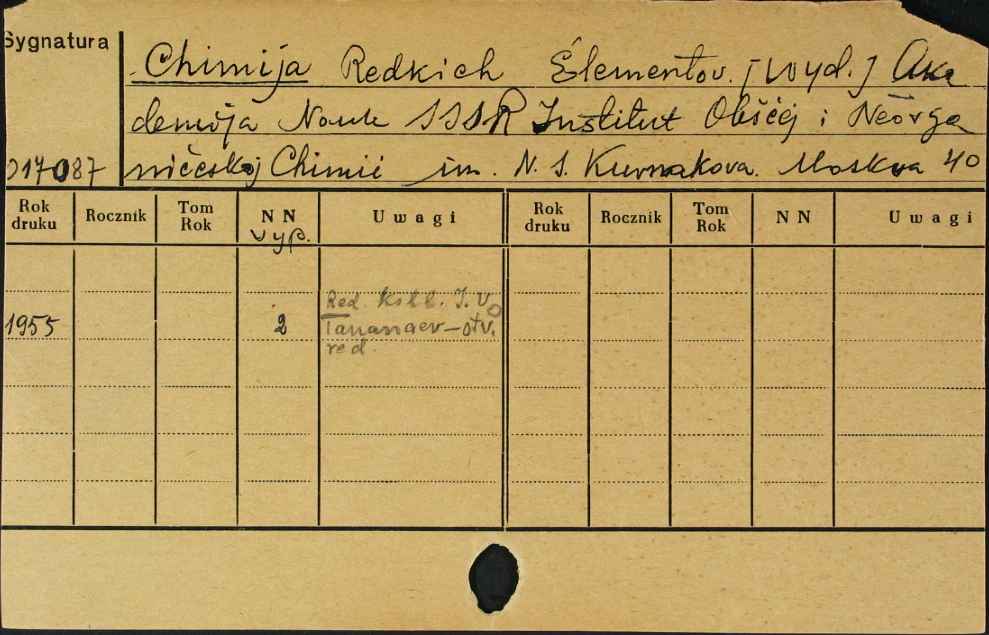 Sygnatura
Chimija Redkich Ėlementov. [Wyd.] Aka
demija Nauk SSSR Institut Obščej i Neorga
017087 ničeskoj Chimii im. N. S. Kurnakova. Moskva 40
Rok druku Rocznik Tom Rok NN vyp. Uwagi Rok druku Rocznik Tom Rok NN Uwagi
Red. koll. I. V.
1955 2 Tananaev – otv.
red.